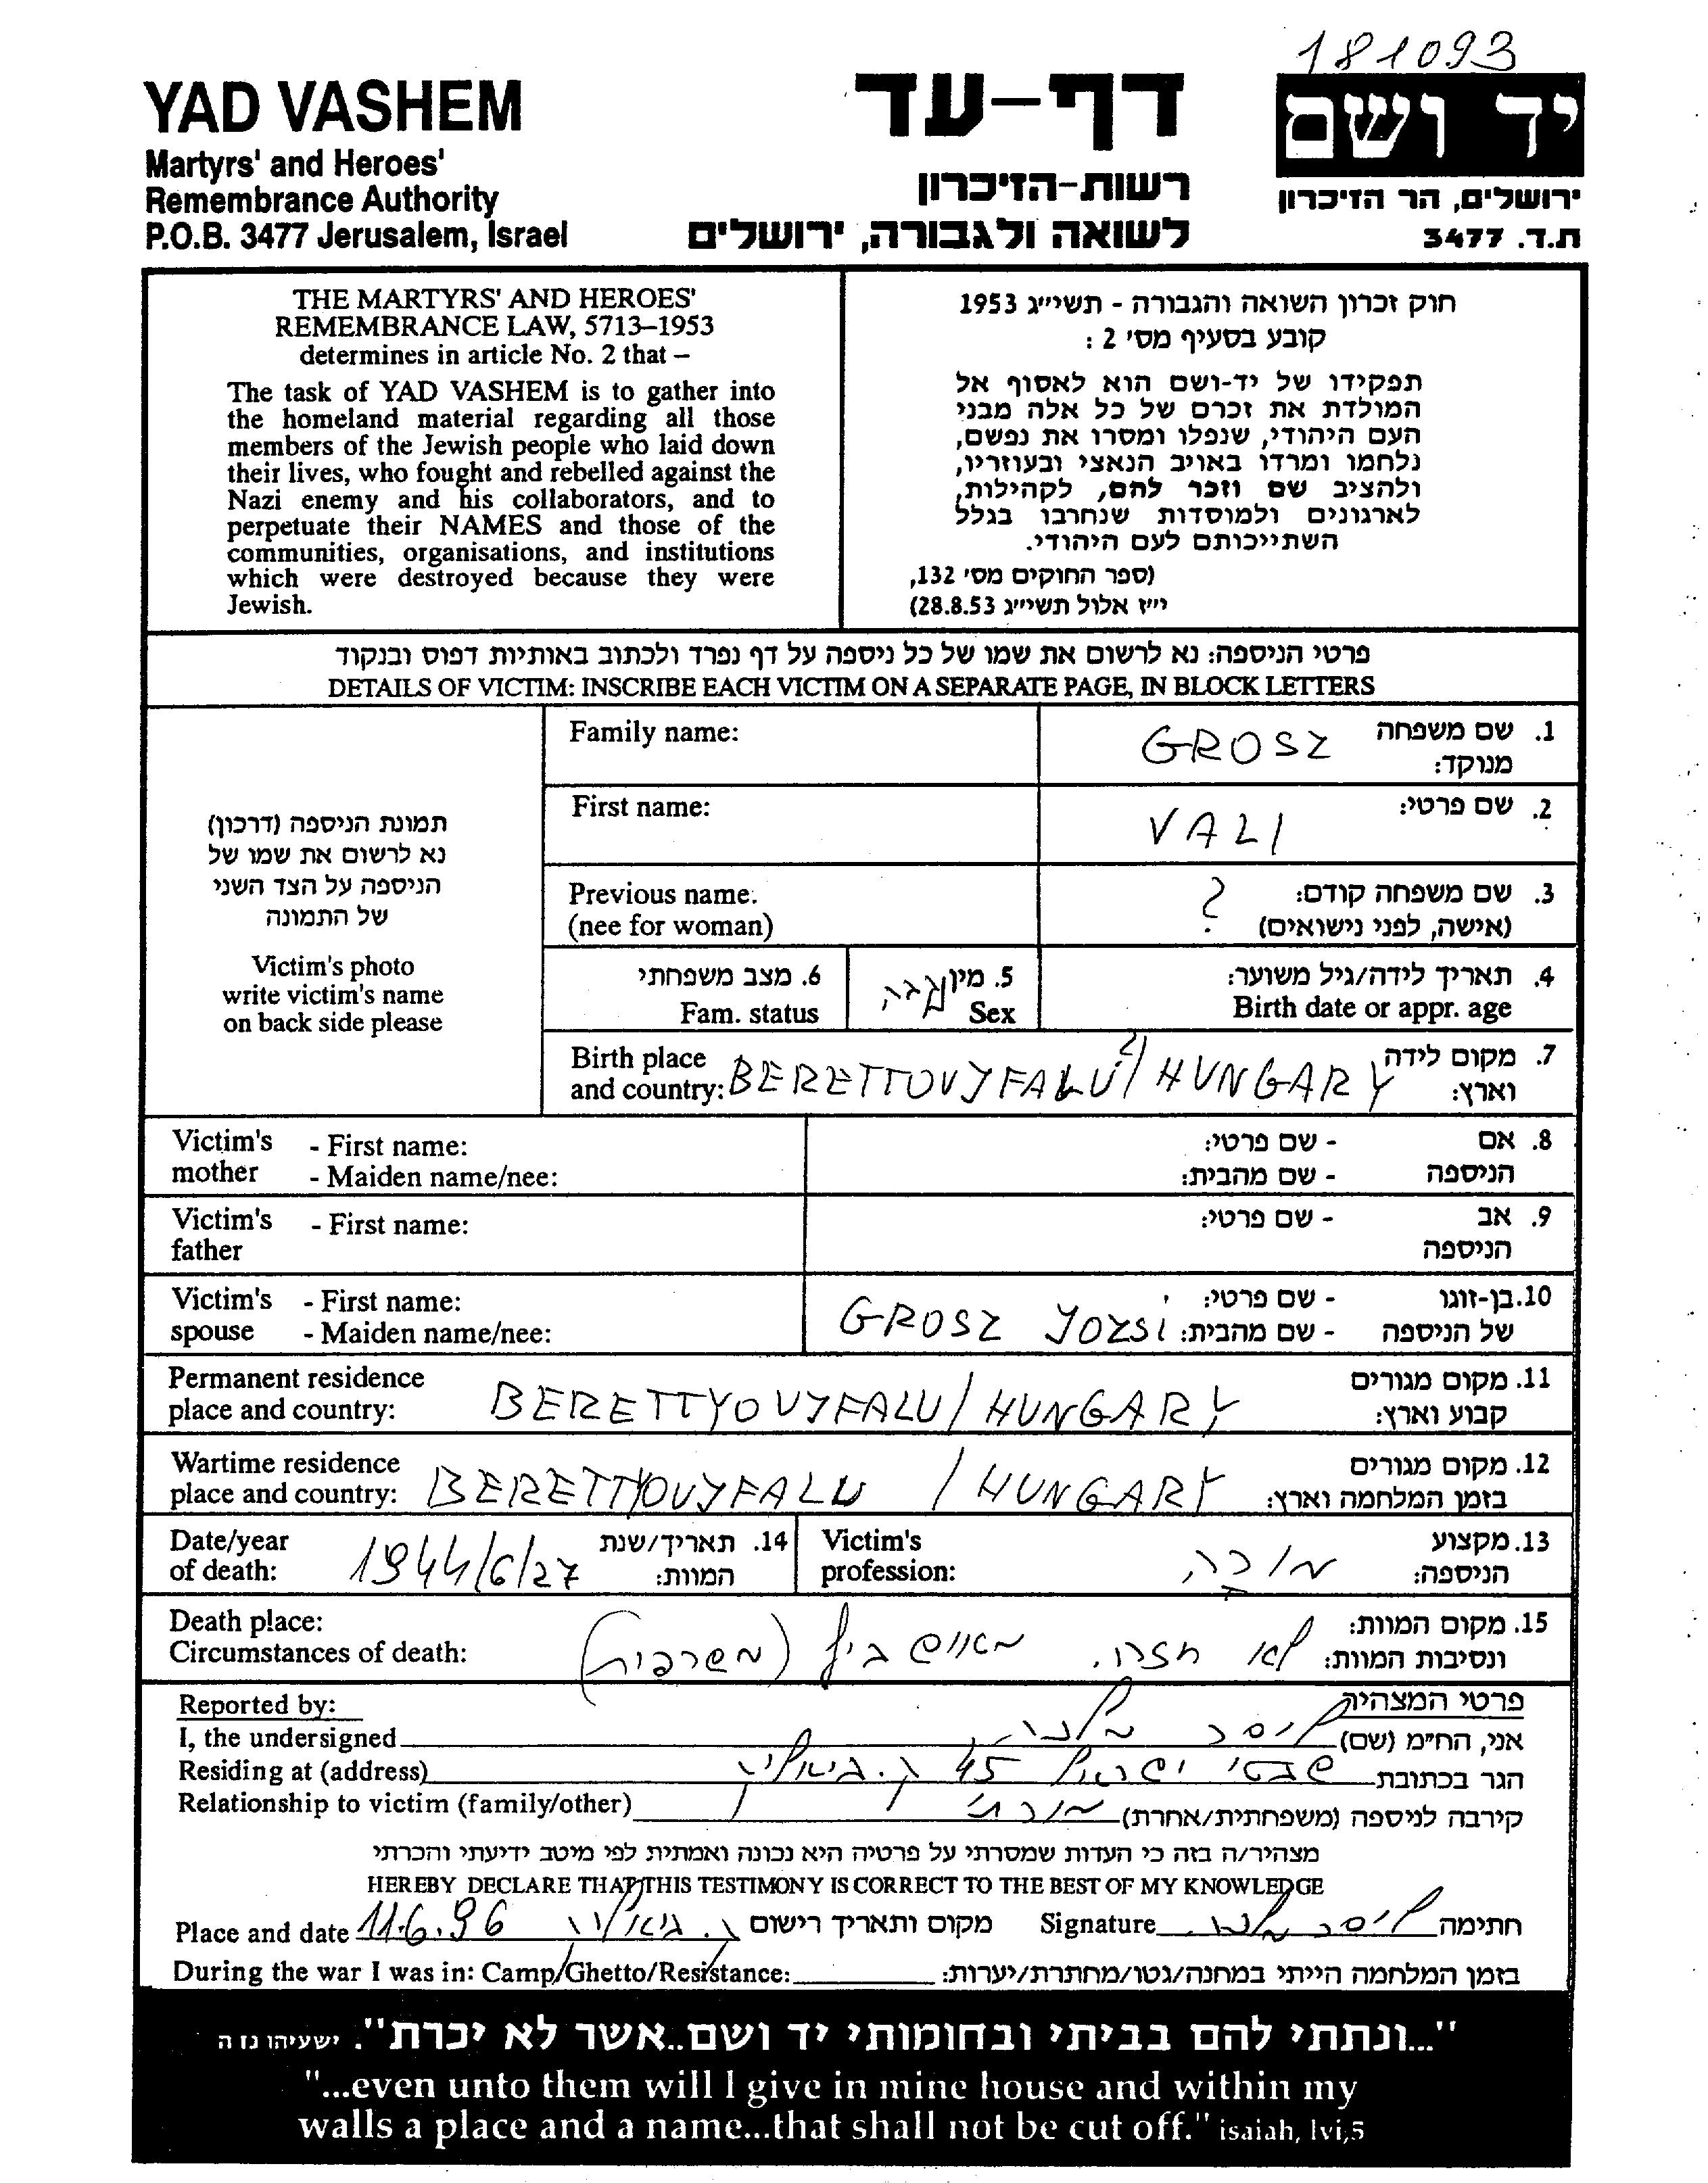 181093
YAD VASHEM
Martyrs' and Heroes'
Remembrance Authority
P.O.B. 3477 Jerusalem, Israel
דף-עד
רשות-הזיכרון
לשואה ולגבורה, ירושלים
יד ושם
ירושלים, הר הזיכרון
ת.ד. 3477
THE MARTYRS' AND HEROES'
REMEMBRANCE LAW, 5713–1953
determines in article No. 2 that –
The task of YAD VASHEM is to gather into
the homeland material regarding all those
members of the Jewish people who laid down
their lives, who fought and rebelled against the
Nazi enemy and his collaborators, and to
perpetuate their NAMES and those of the
communities, organisations, and institutions
which were destroyed because they were
Jewish.
חוק זכרון השואה והגבורה - תשי״ג 1953
קובע בסעיף מס' 2 :
תפקידו של יד-ושם הוא לאסוף אל
המולדת את זכרם של כל אלה מבני
העם היהודי, שנפלו ומסרו את נפשם,
נלחמו ומרדו באויב הנאצי ובעוזריו,
ולהציב שם וזכר להם, לקהילות,
לארגונים ולמוסדות שנחרבו בגלל
השתייכותם לעם היהודי.
(ספר החוקים מס' 132,
י״ז אלול תשי״ג 28.8.53)
פרטי הניספה: נא לרשום את שמו של כל ניספה על דף נפרד ולכתוב באותיות דפוס ובנקוד
DETAILS OF VICTIM: INSCRIBE EACH VICTIM ON A SEPARATE PAGE, IN BLOCK LETTERS
תמונת הניספה (דרכון)
נא לרשום את שמו של
הניספה על הצד השני
של התמונה
Victim's photo
write victim's name
on back side please
Family name: GROSZ 1. שם משפחה
מנוקד:
First name: VALI 2. שם פרטי:
Previous name: ? 3. שם משפחה קודם:
(nee for woman) (אישה, לפני נישואים)
6. מצב משפחתי 5. מין נקבה 4. תאריך לידה/גיל משוער:
Fam. status Sex Birth date or appr. age
Birth place 7. מקום לידה
and country: BERETTOUJFALU / HUNGARY וארץ:
Victim's - First name: - שם פרטי: 8. אם
mother - Maiden name/nee: - שם מהבית: הניספה
Victim's - First name: - שם פרטי: 9. אב
father הניספה
Victim's - First name: - שם פרטי: 10. בן-זוגו
spouse - Maiden name/nee: GROSZ JOZSI - שם מהבית: של הניספה
Permanent residence 11. מקום מגורים
place and country: BERETTYOUJFALU / HUNGARY קבוע וארץ:
Wartime residence 12. מקום מגורים
place and country: BERETTYOUJFALU / HUNGARY בזמן המלחמה וארץ:
Date/year 14. תאריך/שנת Victim's 13. מקצוע
of death: 1944/6/27 המוות: profession: מורה הניספה:
Death place: 15. מקום המוות:
Circumstances of death: לא חזרו. מאושביץ (משרפות) ונסיבות המוות:
Reported by: פרטי המצהיר
I, the undersigned אני, הח״מ (שם)
Residing at (address) שבטי ישראל 45 ק. ביאליק הגר בכתובת
Relationship to victim (family/other) קירבה לניספה (משפחתית/אחרת)
מצהיר/ה בזה כי העדות שמסרתי על פרטיה היא נכונה ואמתית לפי מיטב ידיעתי והכרתי
HEREBY DECLARE THAT THIS TESTIMONY IS CORRECT TO THE BEST OF MY KNOWLEDGE
Place and date 11.6.96 ק. ביאליק מקום ותאריך רישום Signature חתימה
During the war I was in: Camp/Ghetto/Resistance: בזמן המלחמה הייתי במחנה/גטו/מחתרת/יערות:
"...ונתתי להם בביתי ובחומותי יד ושם..אשר לא יכרת". ישעיהו נז ה
"...even unto them will I give in mine house and within my
walls a place and a name...that shall not be cut off." isaiah, lvi,5